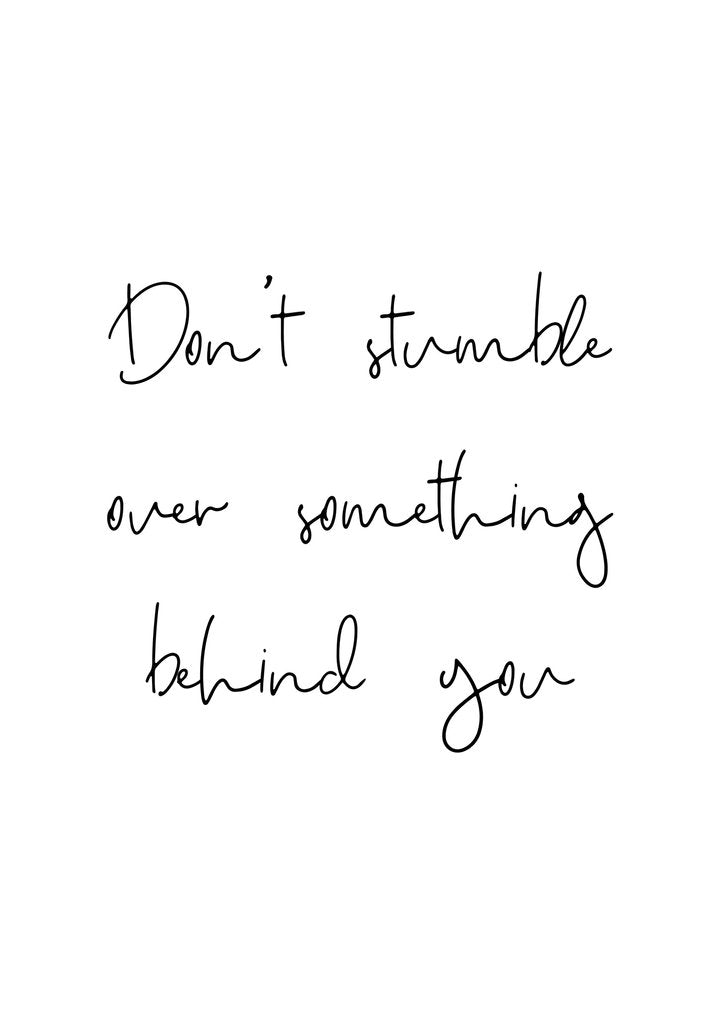 Don't stumble
over something
behind you